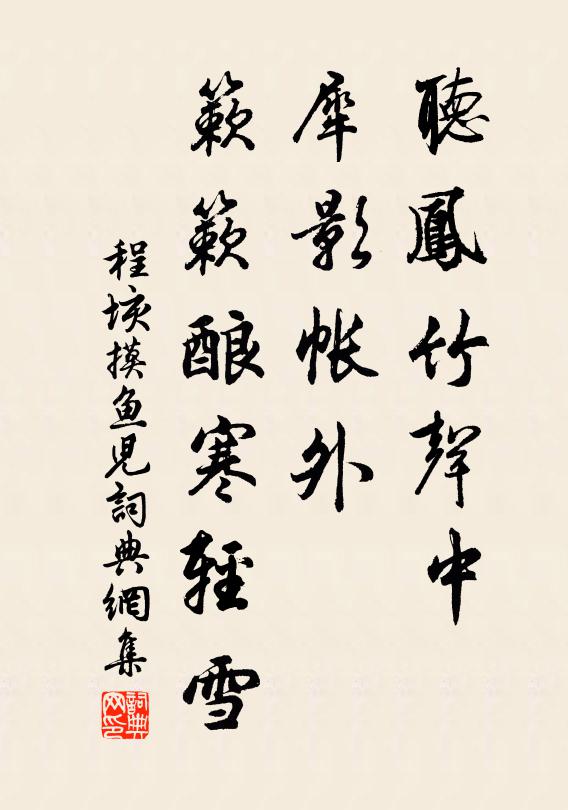 聽鳳竹聲中
犀影帳外
簌簌酿寒輕雪
程垓摸鱼児詞典網集
詞典网印